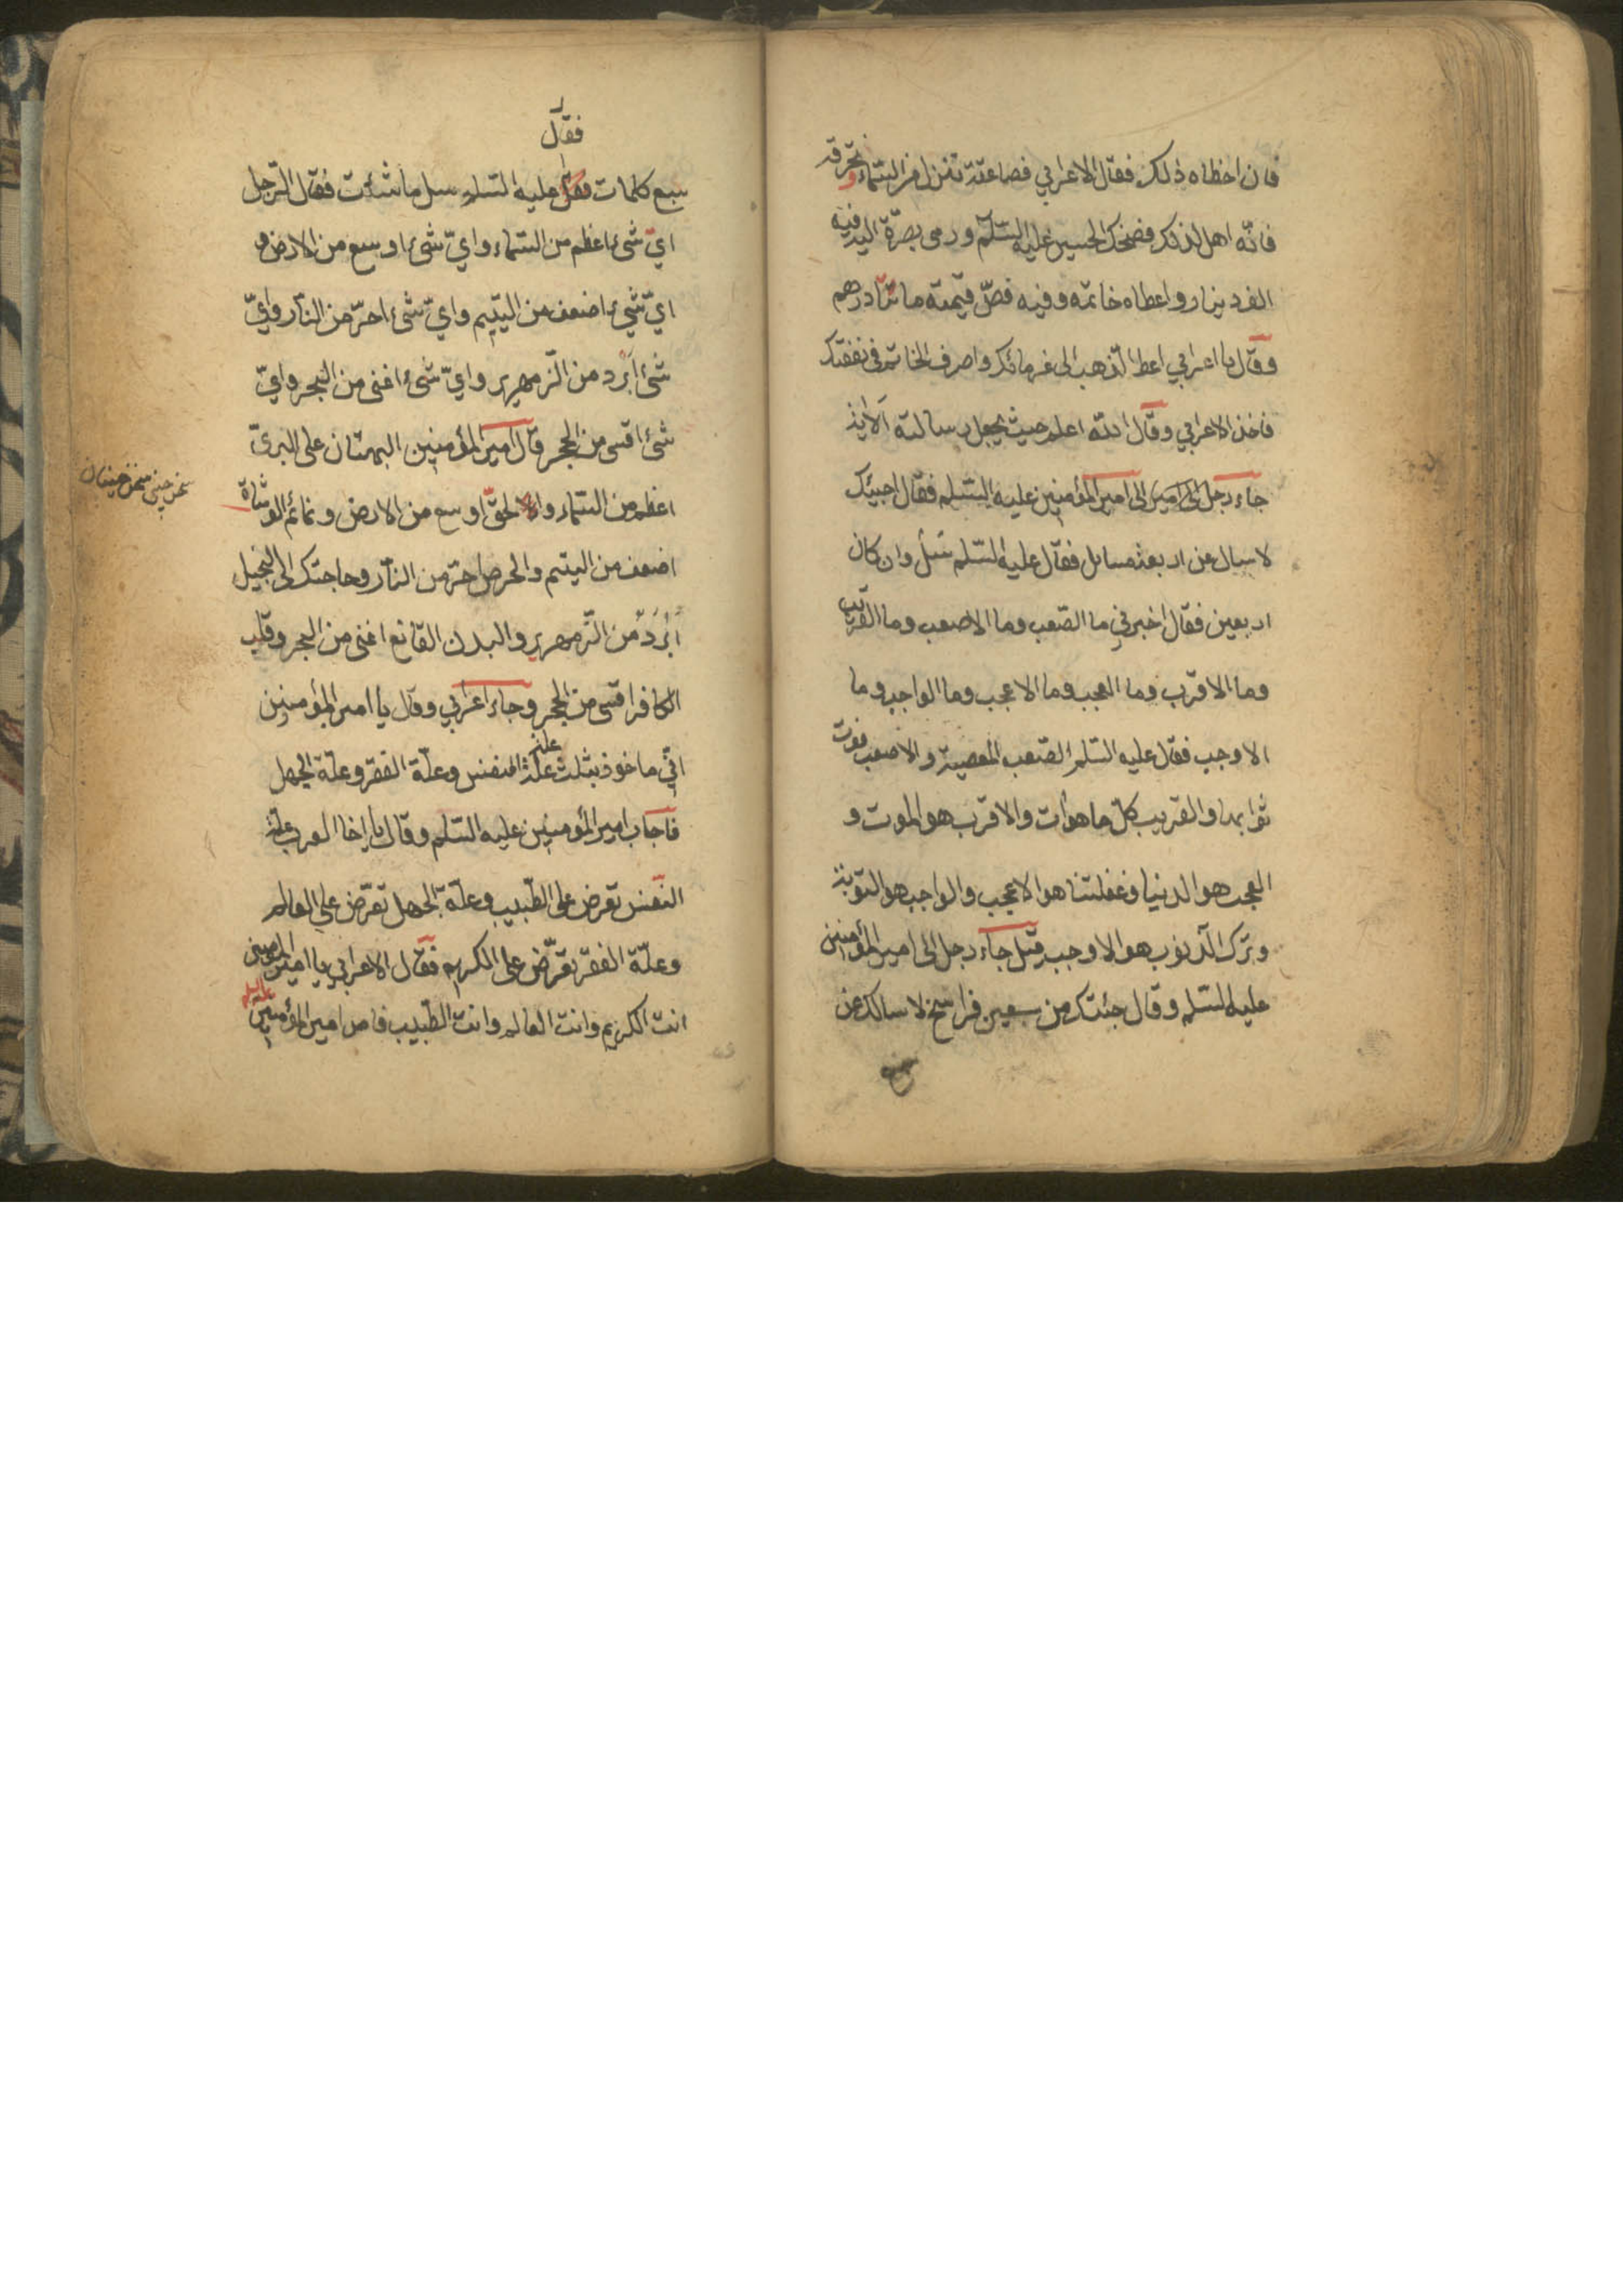 فان اخطاه ذلك فقال الاعرابي فصاعقة تنزل من السّماء و تحرقه
فانّه اهل لذلك فضحك الحسين عليه السّلم ورمى بصرّة اليه فيه
الف دينار واعطاه خاتمه وفيه فصّ قيمته مائتا درهم
وقال يا اعرابي اعط الذهب الى غرمائك واصرف الخاتم فى نفقتك
فاخذ الاعرابي وقال الله اعلم حيث يجعل رسالته الاية
جاء رجل الى امير الى امير المؤمنين عليه السّلم فقال اجيئك
لاسال عن اربعة مسايل فقال عليه السّلم سل وان كان
اربعين فقال اخبرني ما الصّعب وما الاصعب وما القريب
وما الاقرب وما العجب وما الاعجب وما الواجب وما
الاوجب فقال عليه السّلم الصّعب المعصية والاصعب فوت
ثوابها والقريب كلّ ما هو ات والاقرب هو الموت و
العجب هو الدنيا وغفلتنا هو الاعجب والواجب هو التوبة
وترك الذنوب هو الاوجب قيل جاء رجل الى امير المؤمنين
عليه السّلم وقال جئتك من سبعين فراسخ لاسالك عن
فقال
سبع كلمات فقال عليه السّلم سل ما شئت فقال الرّجل
ايّ شئ اعظم من السّماء وايّ شئ اوسع من الارض و
ايّ شئ اضعف من اليتيم وايّ شئ احرّ من النّار وايّ
شئ ابرد من الزمهرير وايّ شئ اغنى من البحر وايّ
شئ اقسى من الحجر قال امير المؤمنين البهتان على البرئ
اعظم من السّماء والحقّ اوسع من الارض ونمائم الوشاة
اضعف من اليتيم والحرص احرّ من النّار وحاجتك الى البخيل
ابرد من الزّمهرير والبدن القانع اغنى من البحر وقلب
الكافر اقسى من الحجر وجاء اعرابي وقال يا امير المؤمنين
انّي ماخوذ بثلث علل علة النفس وعلّة الفقر وعلّة الجهل
فاجاب امير المؤمنين عليه السّلم وقال يا اخا العرب علة
النفس تعرض على الطّبيب وعلّة الجهل تعرّض على العالم
وعلّة الفقر تعرّض على الكريم فقال الاعرابي يا امير المؤمنين
انت الكريم وانت العالم وانت الطّبيب فامر امير المؤمنين عليه السلم